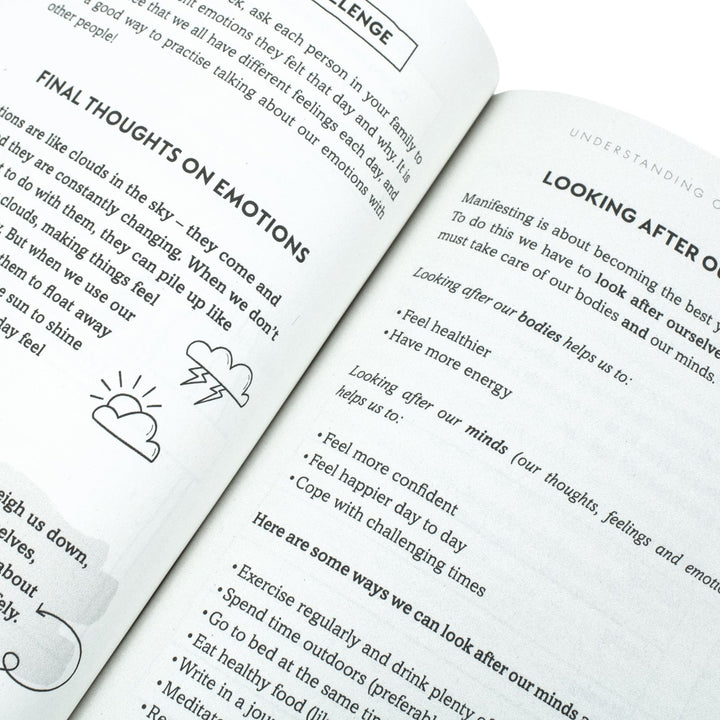 LLENGE
ask each person in your family to
emotions they felt that day and why. It is
that we all have different feelings each day, and
a good way to practise talking about our emotions with
other people!
FINAL THOUGHTS ON EMOTIONS
tions are like clouds in the sky – they come and
they are constantly changing. When we don't
to do with them, they can pile up like
clouds, making things feel
But when we use our
them to float away
sun to shine
day feel
eigh us down,
elves,
about
ely.
UNDERSTANDING
LOOKING AFTER
Manifesting is about becoming the best
To do this we have to look after ourselve
must take care of our bodies and our minds.
Looking after our bodies helps us to:
• Feel healthier
• Have more energy
Looking after our minds (our thoughts, feelings and emotio
helps us to:
• Feel more confident
• Feel happier day to day
• Cope with challenging times
Here are some ways we can look after our minds
• Exercise regularly and drink plenty
• Spend time outdoors (preferabl
• Go to bed at the same tim
• Eat healthy food (lik
• Write in a jour
• Meditate